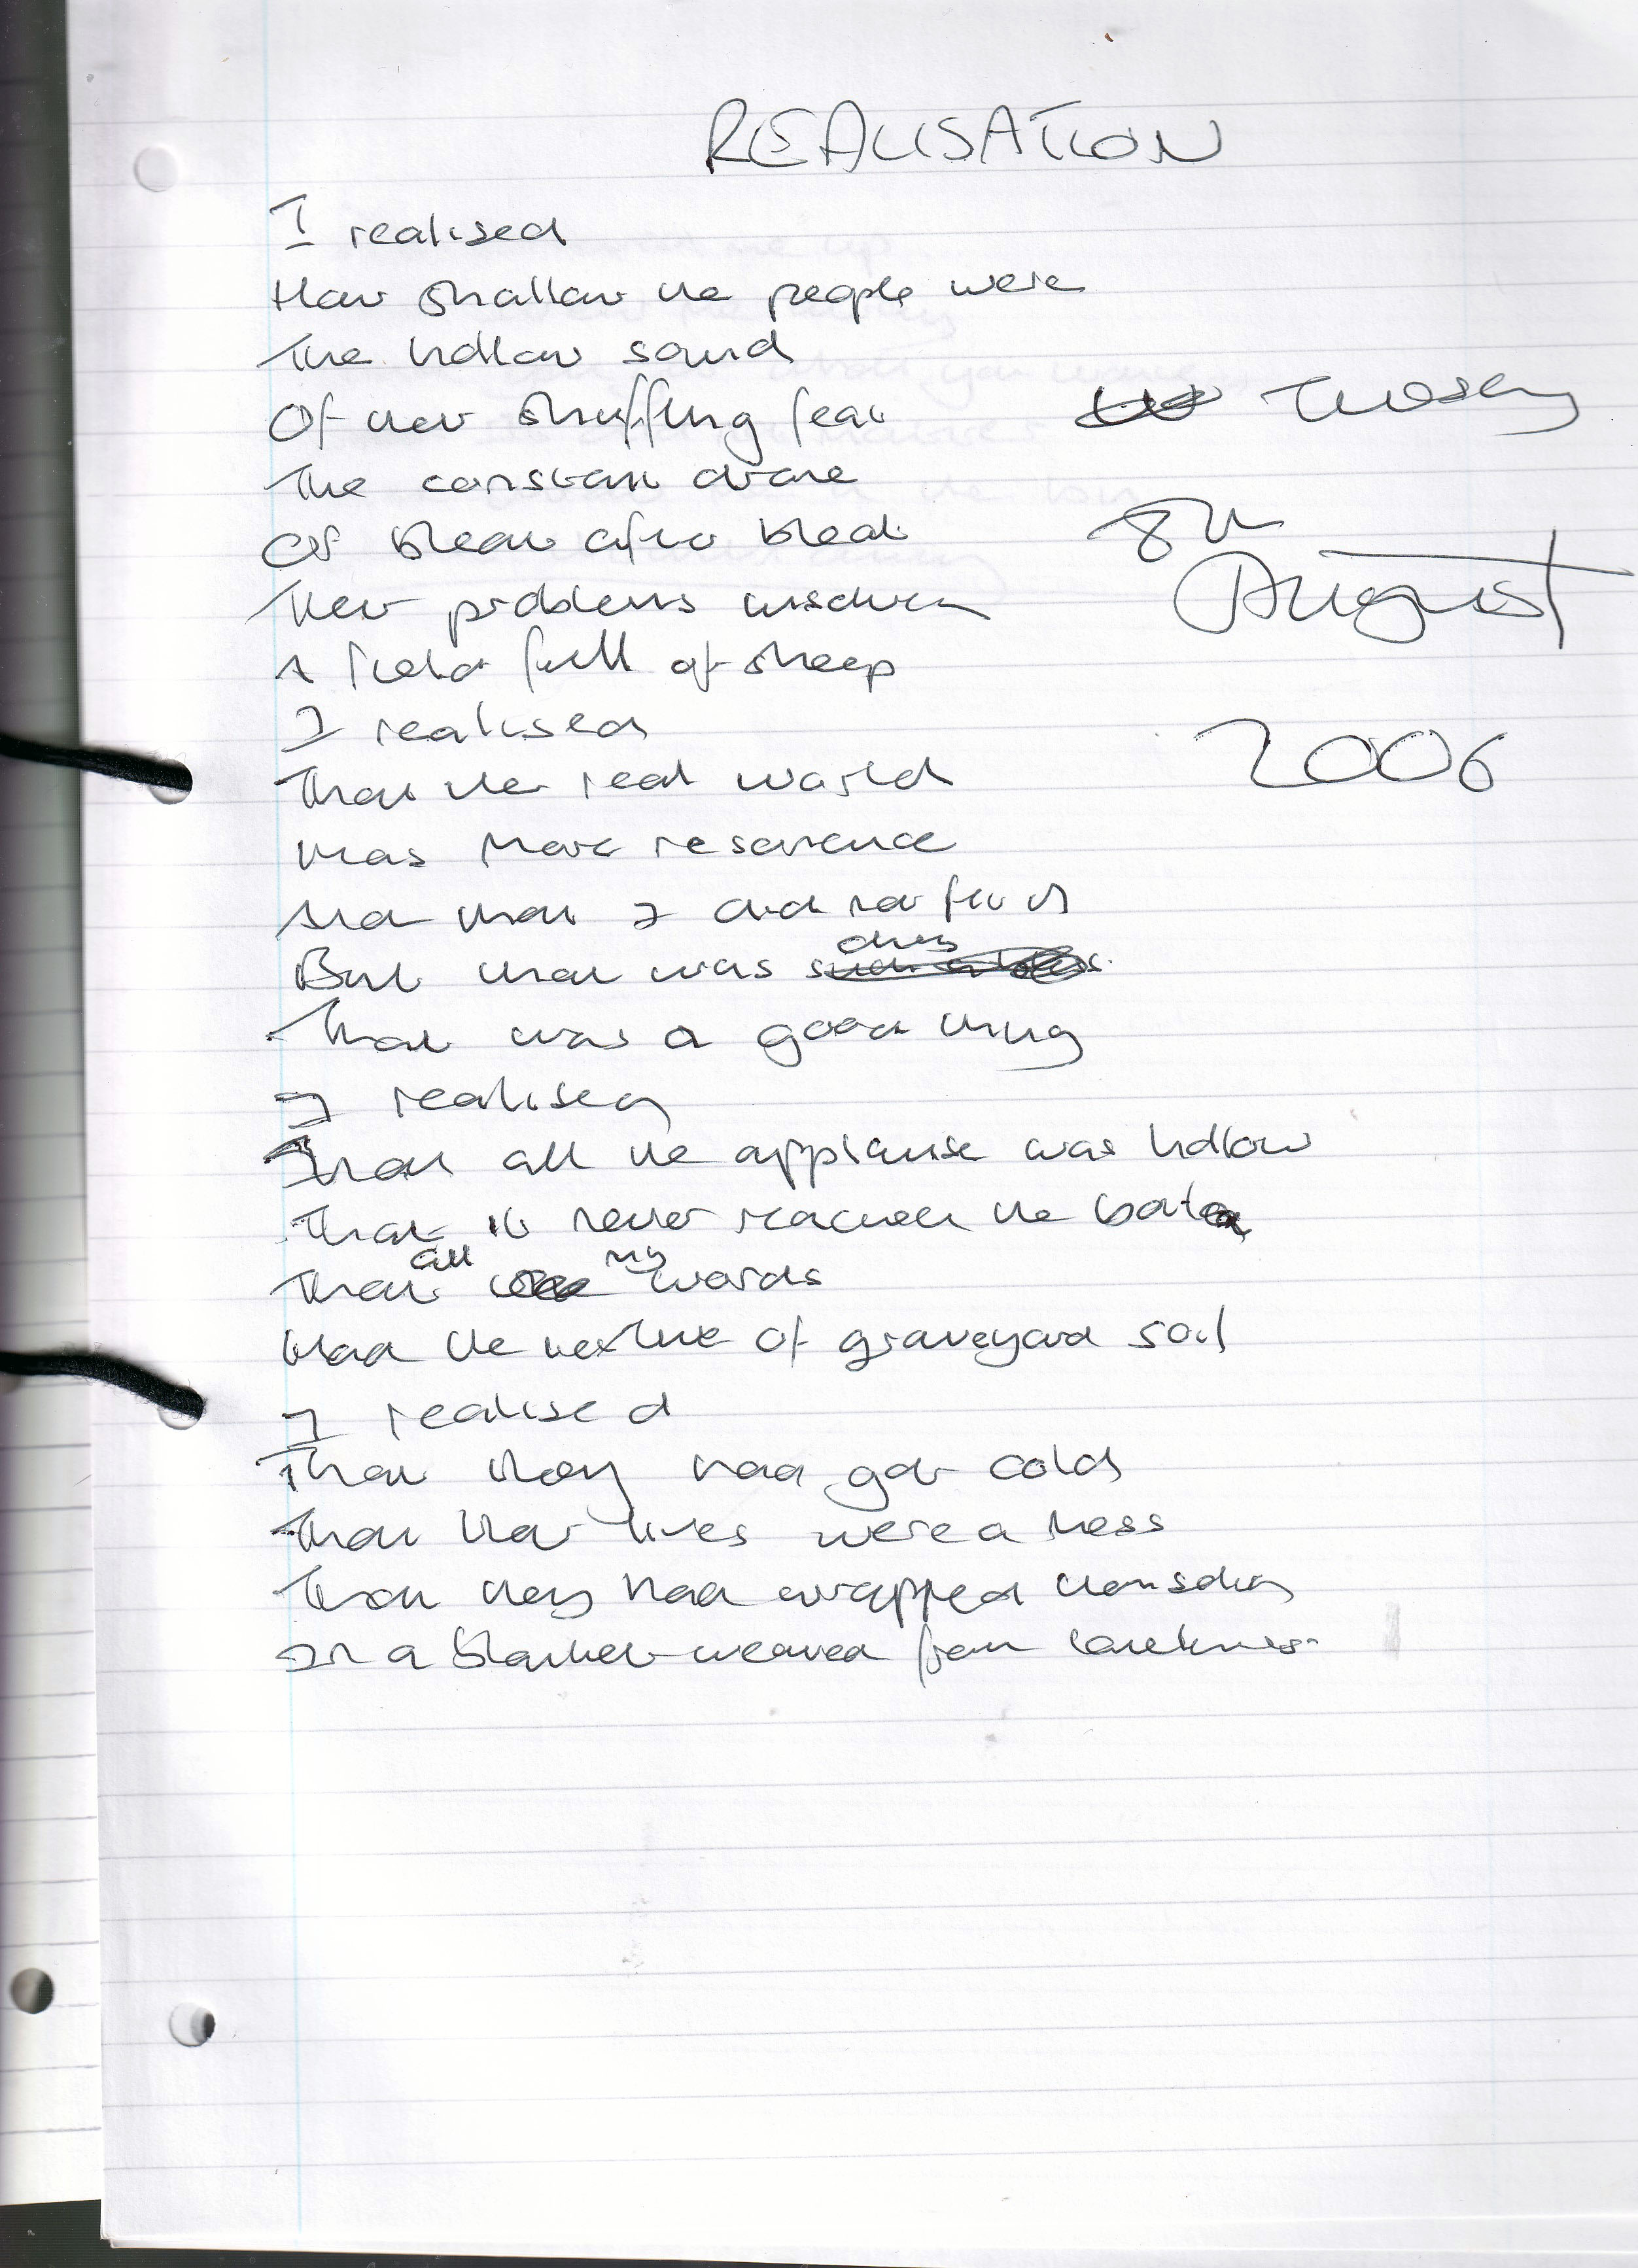 REALISATION
I realised
How shallow the people were
The hollow sound
Of their shuffling feat
Tuesday
The constant drone
8th
Of bleat after bleat
August
Their problems
A field full of sheep
I realised
2006
That the real world
Has more resonance
And that I did not fit it
But that was
That was a good thing
I realised
That all the applause was hollow
That it never reached the
That all my words
Had the texture of graveyard soil
I realised
That they had got cold
That their lives were a mess
That they had wrapped themselves
In a blanket weaved from